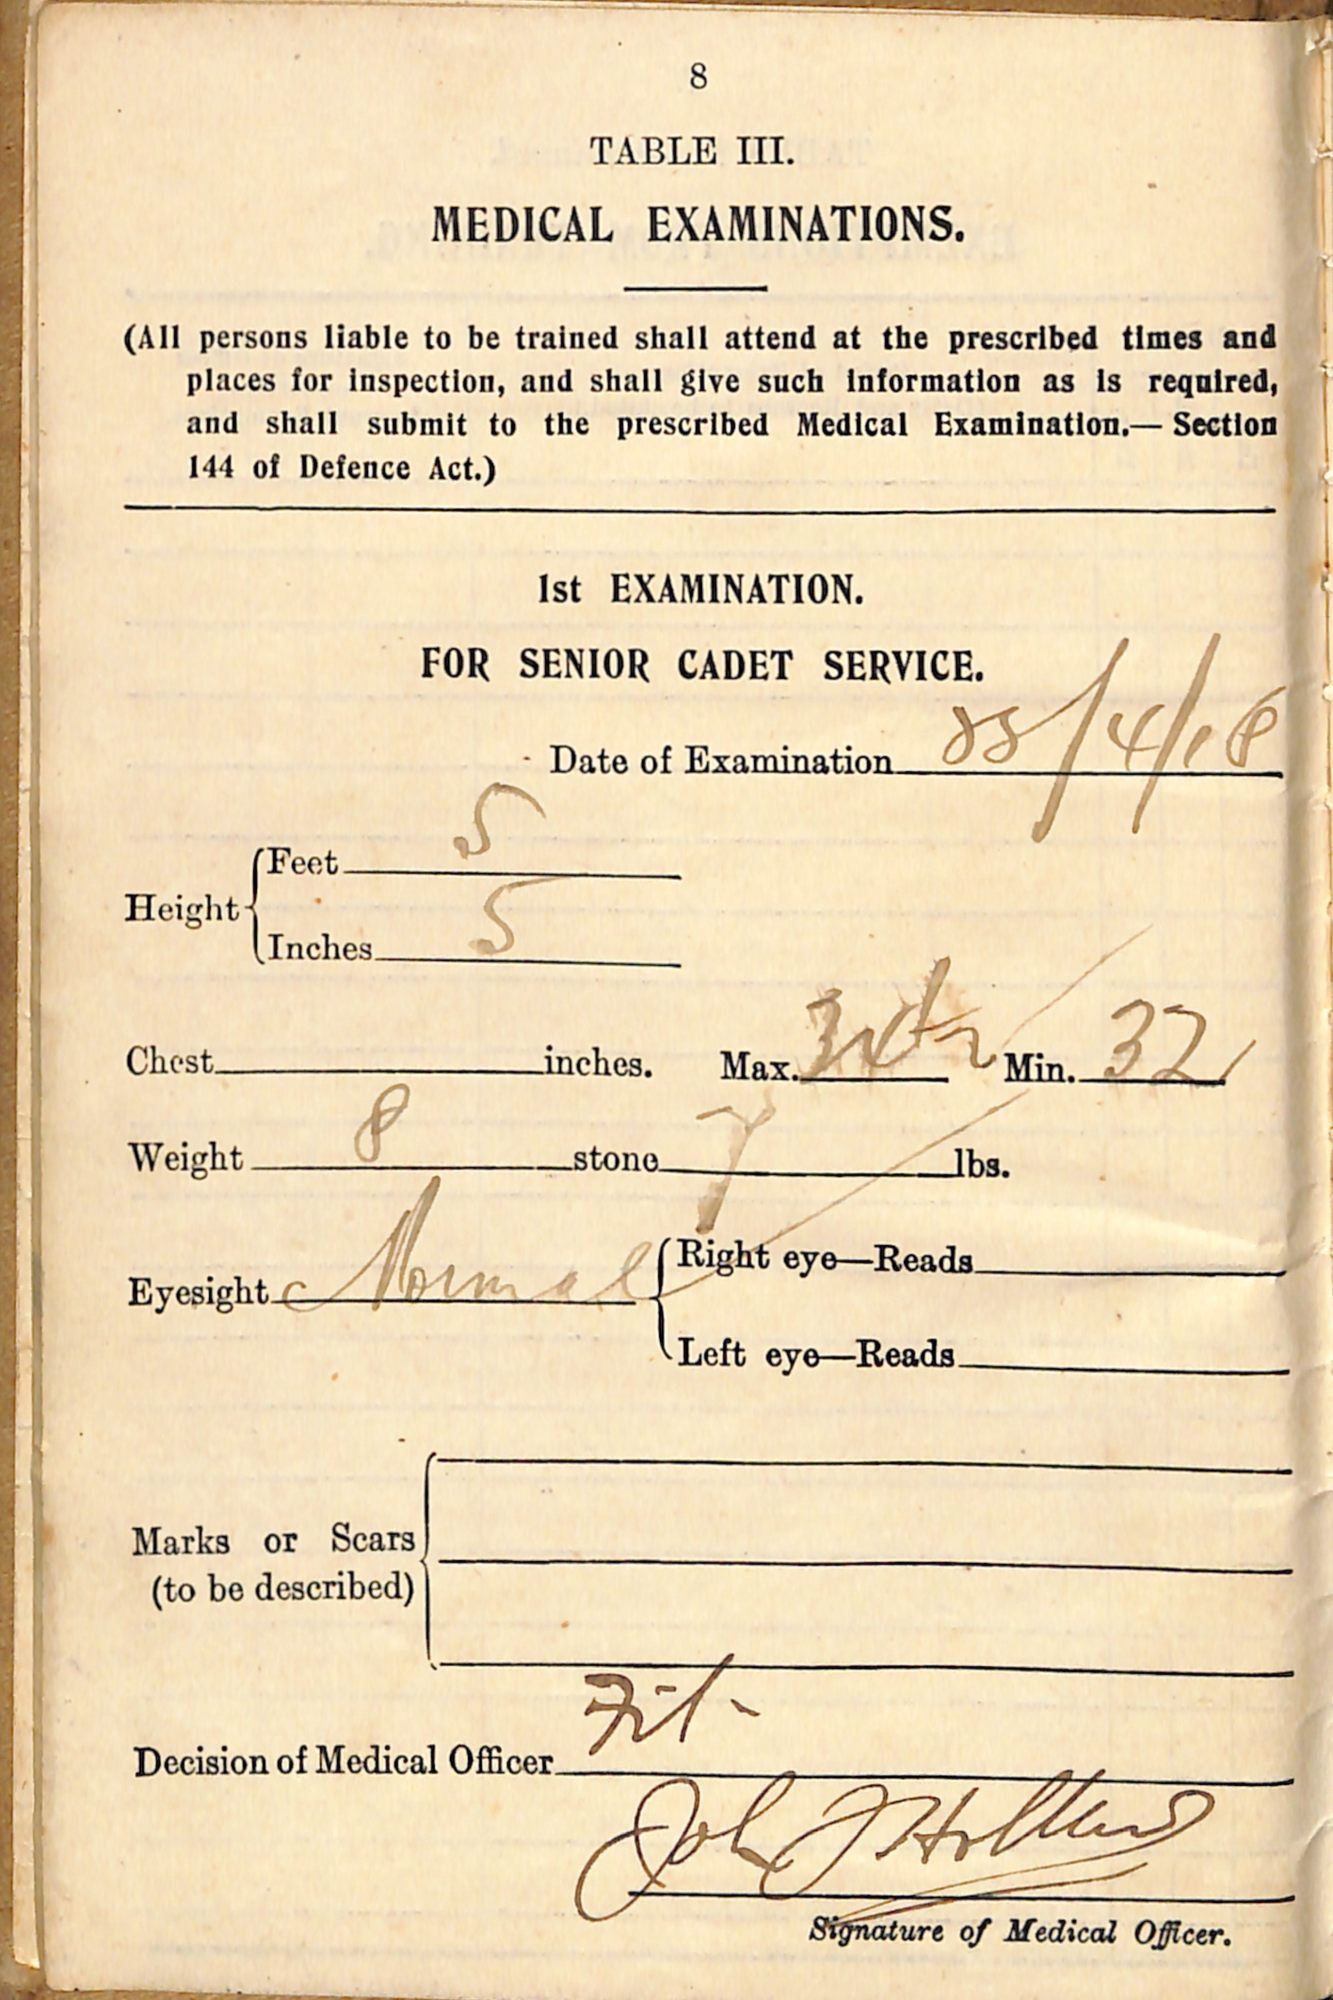 8
TABLE III.
MEDICAL EXAMINATIONS.
(All persons liable to be trained shall attend at the prescribed times and
places for inspection, and shall give such information as is required,
and shall submit to the prescribed Medical Examination.— Section
144 of Defence Act.)
1st EXAMINATION.
FOR SENIOR CADET SERVICE.
Date of Examination /4/18
Height Feet 5
Inches 5
Chest inches. Max. Min. 32
Weight 8 stone 7 lbs.
Eyesight Normal Right eye—Reads
Left eye—Reads
Marks or Scars
(to be described)
Decision of Medical Officer Fit
John J
Signature of Medical Officer.